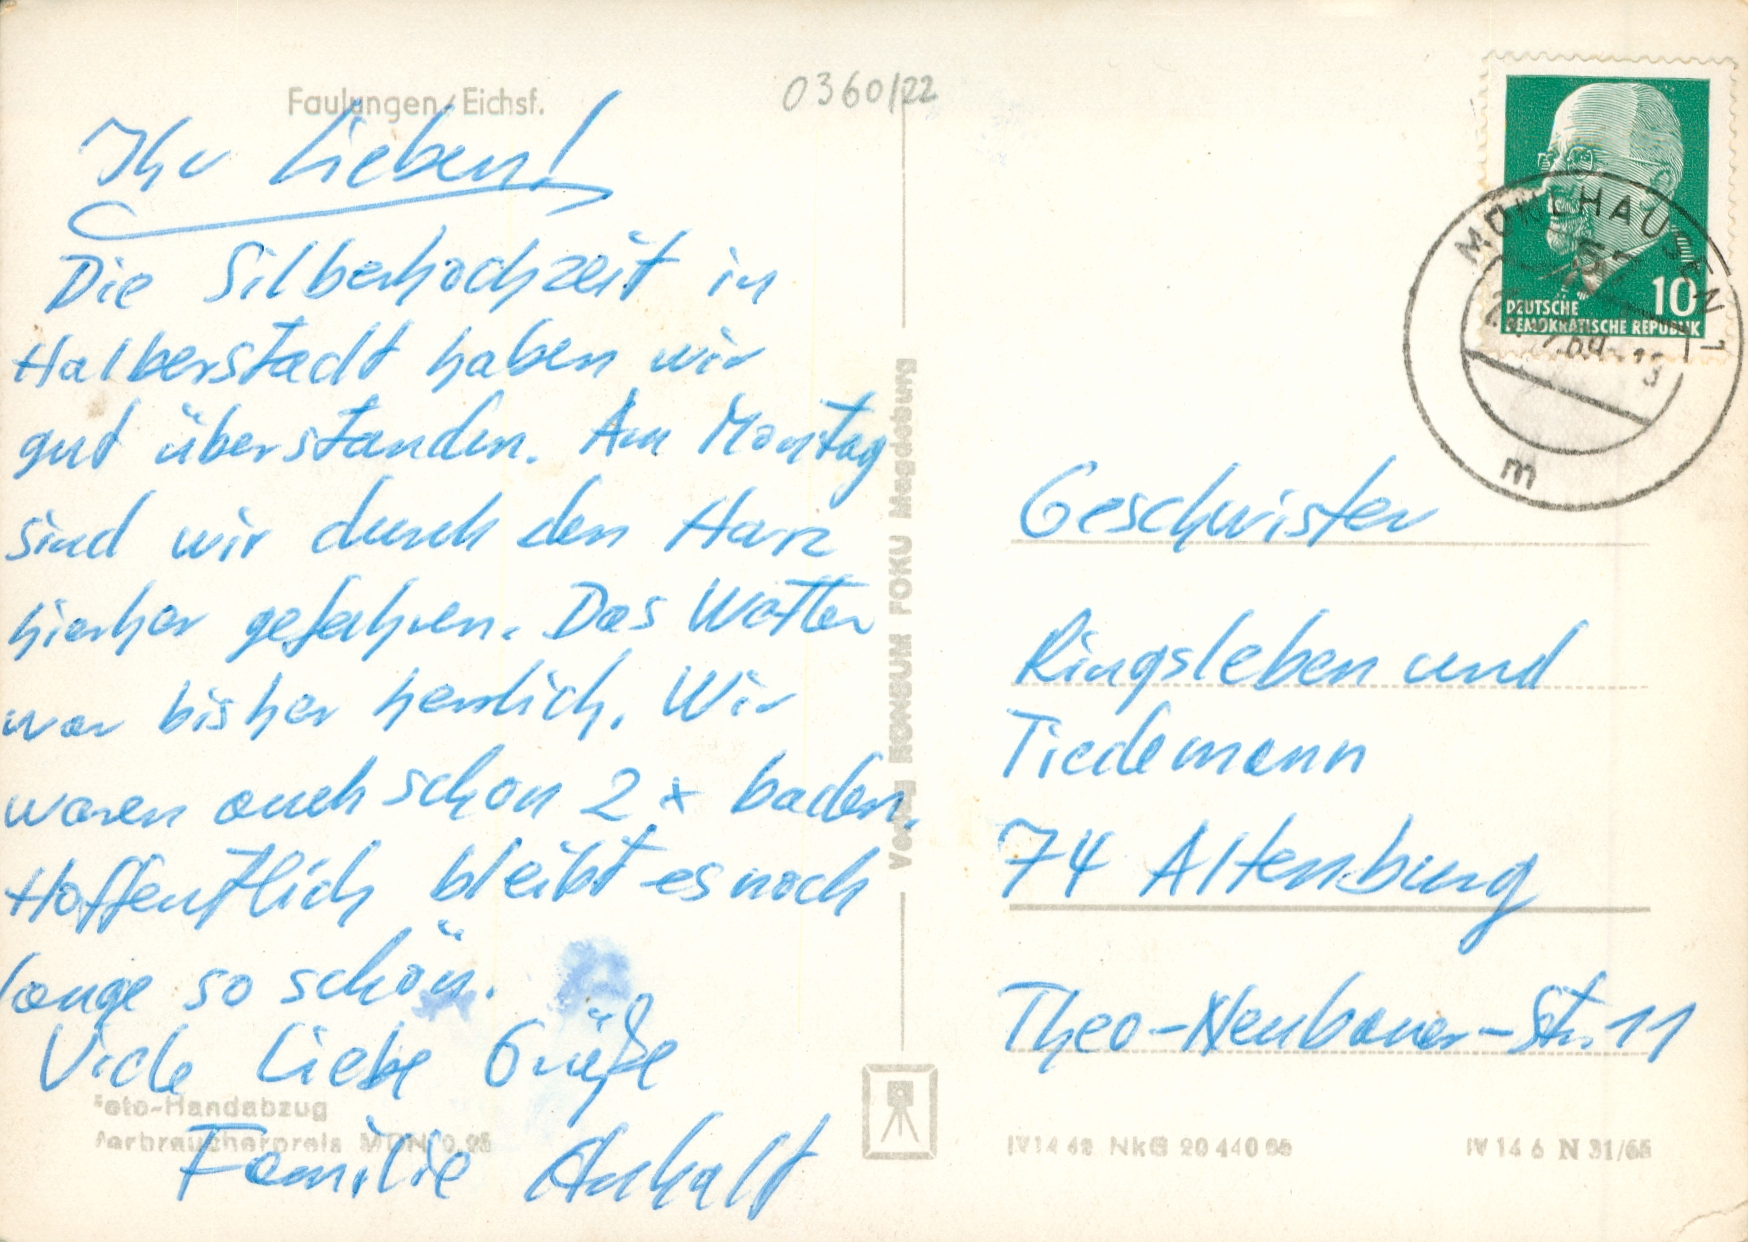 Faulungen/Eichsf.
0360/22
Ihr Lieben!
Die Silberhochzeit in
Halberstadt haben wir
gut überstanden. Am Montag
sind wir durch den Harz
hierher gefahren. Das Wetter
war bisher herrlich. Wir
waren auch schon 2 x baden.
Hoffentlich bleibt es noch
lange so schön.
Viele liebe Grüße
Familie Anhalt
Foto-Handabzug
Verbraucherpreis MDN 0,25
Verlag KONSUM FOKU Magdeburg
MÜHLHAUSEN 1
m
10
DEUTSCHE
DEMOKRATISCHE REPUBLIK
Geschwister
Ringsleben und
Tiedemann
74 Altenburg
Theo-Neubauer-Str. 11
IV 14 6 N 31/65